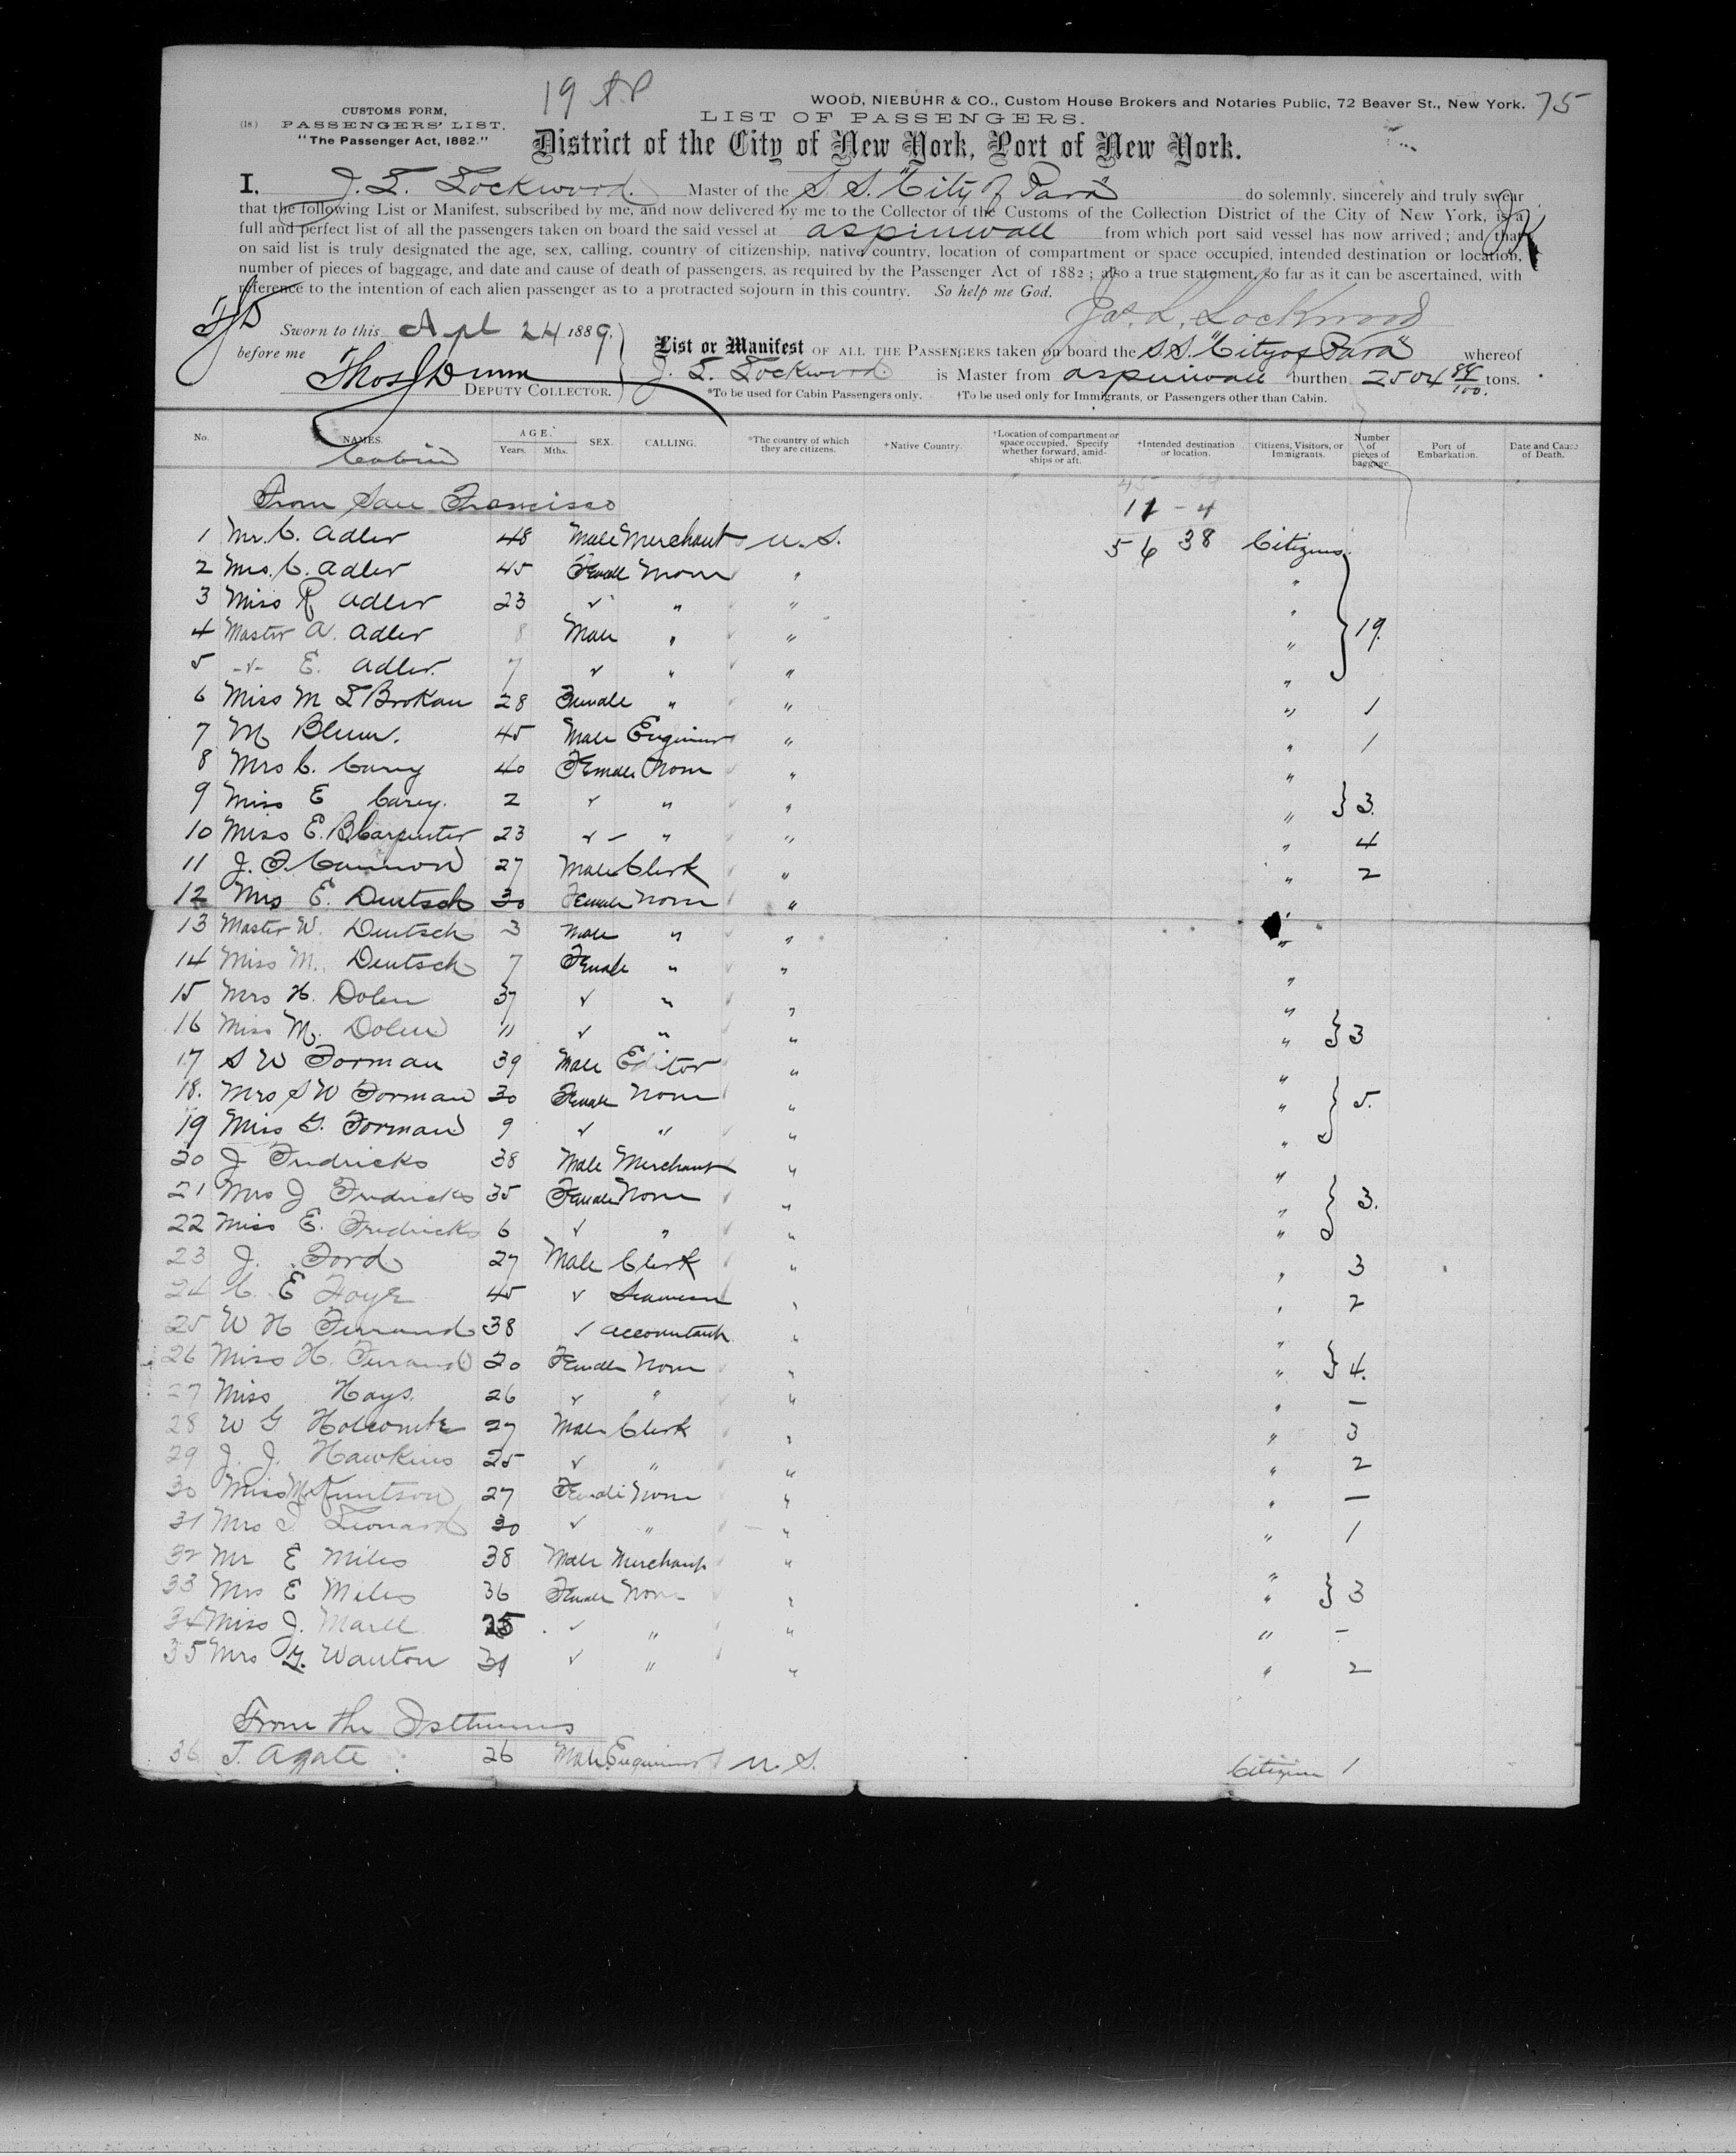 19 A.P.
WOOD, NIEBUHR & CO., Custom House Brokers and Notaries Public, 72 Beaver St., New York. 75
CUSTOMS FORM,
(18) PASSENGERS' LIST,
"The Passenger Act, 1882."
LIST OF PASSENGERS.
District of the City of New York, Port of New York.
I, J. L. Lockwood. Master of the S. S. "City of Para" do solemnly, sincerely and truly swear
that the following List or Manifest, subscribed by me, and now delivered by me to the Collector of the Customs of the Collection District of the City of New York, is a
full and perfect list of all the passengers taken on board the said vessel at aspinwall from which port said vessel has now arrived; and that
on said list is truly designated the age, sex, calling, country of citizenship, native country, location of compartment or space occupied, intended destination or location,
number of pieces of baggage, and date and cause of death of passengers, as required by the Passenger Act of 1882; also a true statement, so far as it can be ascertained, with
reference to the intention of each alien passenger as to a protracted sojourn in this country. So help me God.
Jas. L. Lockwood
Sworn to this Apl 24 1889,
before me
Thos J Dunn
DEPUTY COLLECTOR.
List or Manifest OF ALL THE PASSENGERS taken on board the S.S. "City of Para" whereof
J. L. Lockwood is Master from aspinwall burthen 2504 tons.
*To be used for Cabin Passengers only. †To be used only for Immigrants, or Passengers other than Cabin.
No. NAMES. AGE. Years. Mths. SEX. CALLING. *The country of which they are citizens. †Native Country. †Location of compartment or space occupied. Specify whether forward, amidships or aft. †Intended destination or location. Citizens, Visitors, or Immigrants. Number of pieces of baggage. Port of Embarkation. Date and Cause of Death.
Cabin
From San Francisco
11 - 4
1 Mr. C. Adler 48 Male Merchant U. S. 56 38 Citizens
2 Mrs. C. Adler 45 Female None " "
3 Miss R Adler 23 " " " "
4 Master A. Adler 8 Male " " " } 19.
5 -"- E. Adler. 7 " " " "
6 Miss M L Brokaw 28 Female " " " 1
7 M Blum. 45 Male Engineer " " 1
8 Mrs C. Carey 40 Female None " "
9 Miss E Carey. 2 " " " " } 3.
10 Miss E. B. Carpenter 23 " " " " 4
11 J. F. Cannon 27 Male Clerk " " 2
12 Mrs E. Deutsch 30 Female None " "
13 Master W. Deutsch 3 Male " " "
14 Miss M. Deutsch 7 Female " " "
15 Mrs H. Dolen 37 " " " "
16 Miss M. Dolen 11 " " " " } 3
17 S W Forman 39 Male Editor " "
18. Mrs S W Forman 30 Female None " " } 5.
19 Miss G. Forman 9 " " " "
20 J Fredricks 38 Male Merchant " "
21 Mrs J Fredricks 35 Female None " " } 3.
22 Miss E. Fredricks 6 " " " "
23 J. Ford 27 Male Clerk " " 3
24 C. E Foye 45 " Seaman " " 2
25 W H Ferrand 38 " accountant " "
26 Miss H. Ferrand 20 Female None " " } 4.
27 Miss Hays. 26 " " " " —
28 W G Holcombe 27 Male Clerk " " 3
29 J. J. Hawkins 25 " " " " 2
30 Miss M. Knutson 27 Female None " " —
31 Mrs I Leonard 30 " " " " 1
32 Mr E Miles 38 Male Merchant " "
33 Mrs E Miles 36 Female None " " } 3
34 Miss J. Marll 25 " " " " -
35 Mrs G. Wanton 31 " " " " 2
From the Isthmus
36 J. Agate 26 Male Engineer U. S. Citizen 1